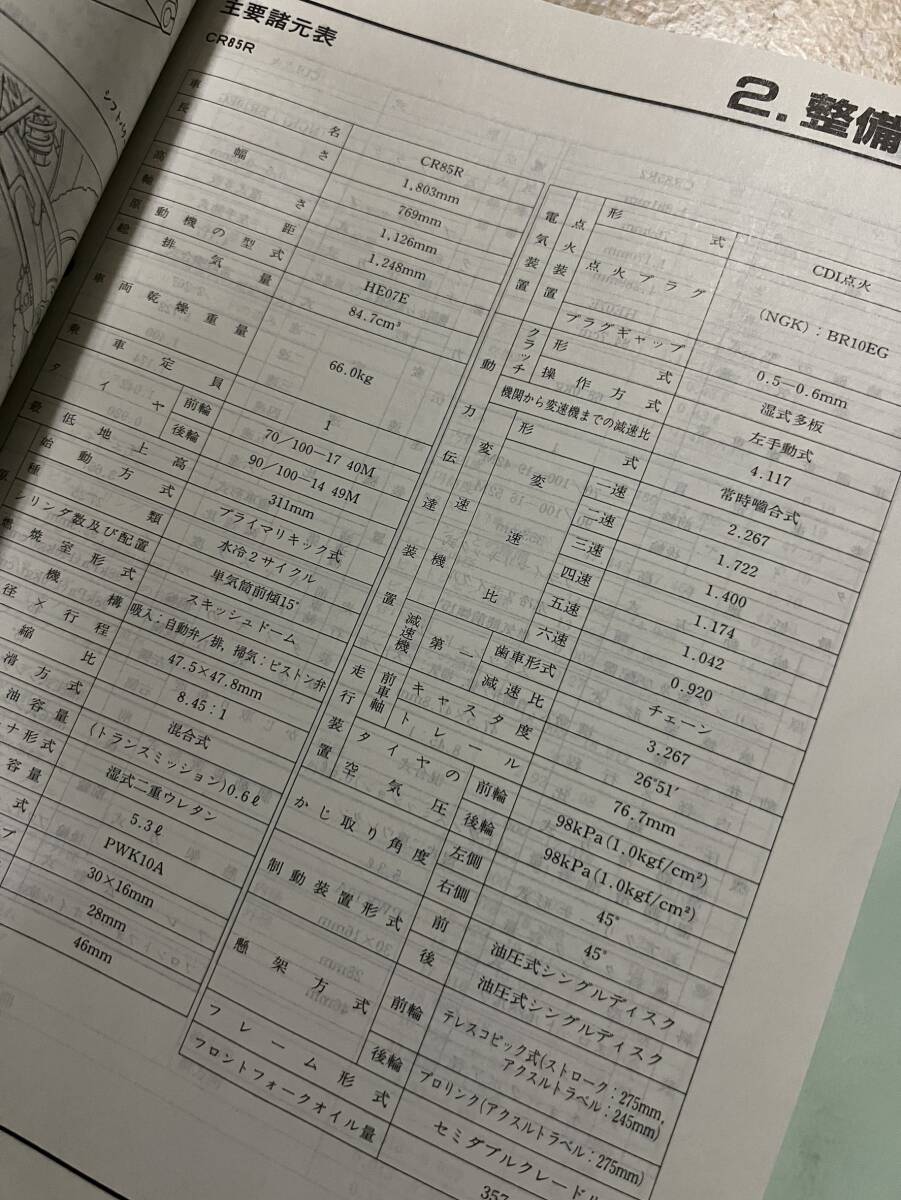 シフトペダ
主要諸元表
CR85R
2. 整備
車名 CR85R
長さ 1,803mm
幅 769mm
高さ 1,126mm
軸距 1,248mm
原動機の型式 HE07E
総排気量 84.7cm³
車両乾燥重量 66.0kg
乗車定員 1
タイヤ 前輪 70/100-17 40M
後輪 90/100-14 49M
最低地上高 311mm
始動方式 プライマリキック式
種類 水冷2サイクル
シリンダ数及び配置 単気筒前傾15°
燃焼室形式 スキッシュドーム
機構 吸入：自動弁/排, 掃気：ピストン弁
径×行程 47.5×47.8mm
縮比 8.45：1
滑方式 混合式
油容量 (トランスミッション)0.6ℓ
ナ形式 湿式二重ウレタン
容量 5.3ℓ
式 PWK10A
プ 30×16mm
28mm
46mm
電気装置 点火装置 形式 CDI点火
点火プラグ (NGK)：BR10EG
プラグギャップ 0.5－0.6mm
動力伝達装置 クラッチ 形式 湿式多板
操作方式 左手動式
機関から変速機までの減速比 4.117
変速機 形式 常時嚙合式
変速比 一速 2.267
二速 1.722
三速 1.400
四速 1.174
五速 1.042
六速 0.920
減速機 第一 歯車形式 チェーン
減速比 3.267
走行装置 前車軸 キャスタ度 26°51′
トレール 76.7mm
タイヤの空気圧 前輪 98kPa(1.0kgf/cm²)
後輪 98kPa(1.0kgf/cm²)
かじ取り角度 左側 45°
右側 45°
制動装置形式 前 油圧式シングルディスク
後 油圧式シングルディスク
懸架方式 前輪 テレスコピック式(ストローク：275mm,
アクスルトラベル：245mm)
後輪 プロリンク(アクスルトラベル：275mm)
フレーム形式 セミダブルクレードル
フロントフォークオイル量 357